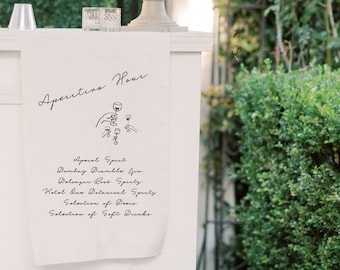 Aperitivo Hour
Aperol Spritz
Bombay Bramble Gin
Rosé Spritz
Botanical Spritz
Selection of Beers
Selection of Soft Drinks